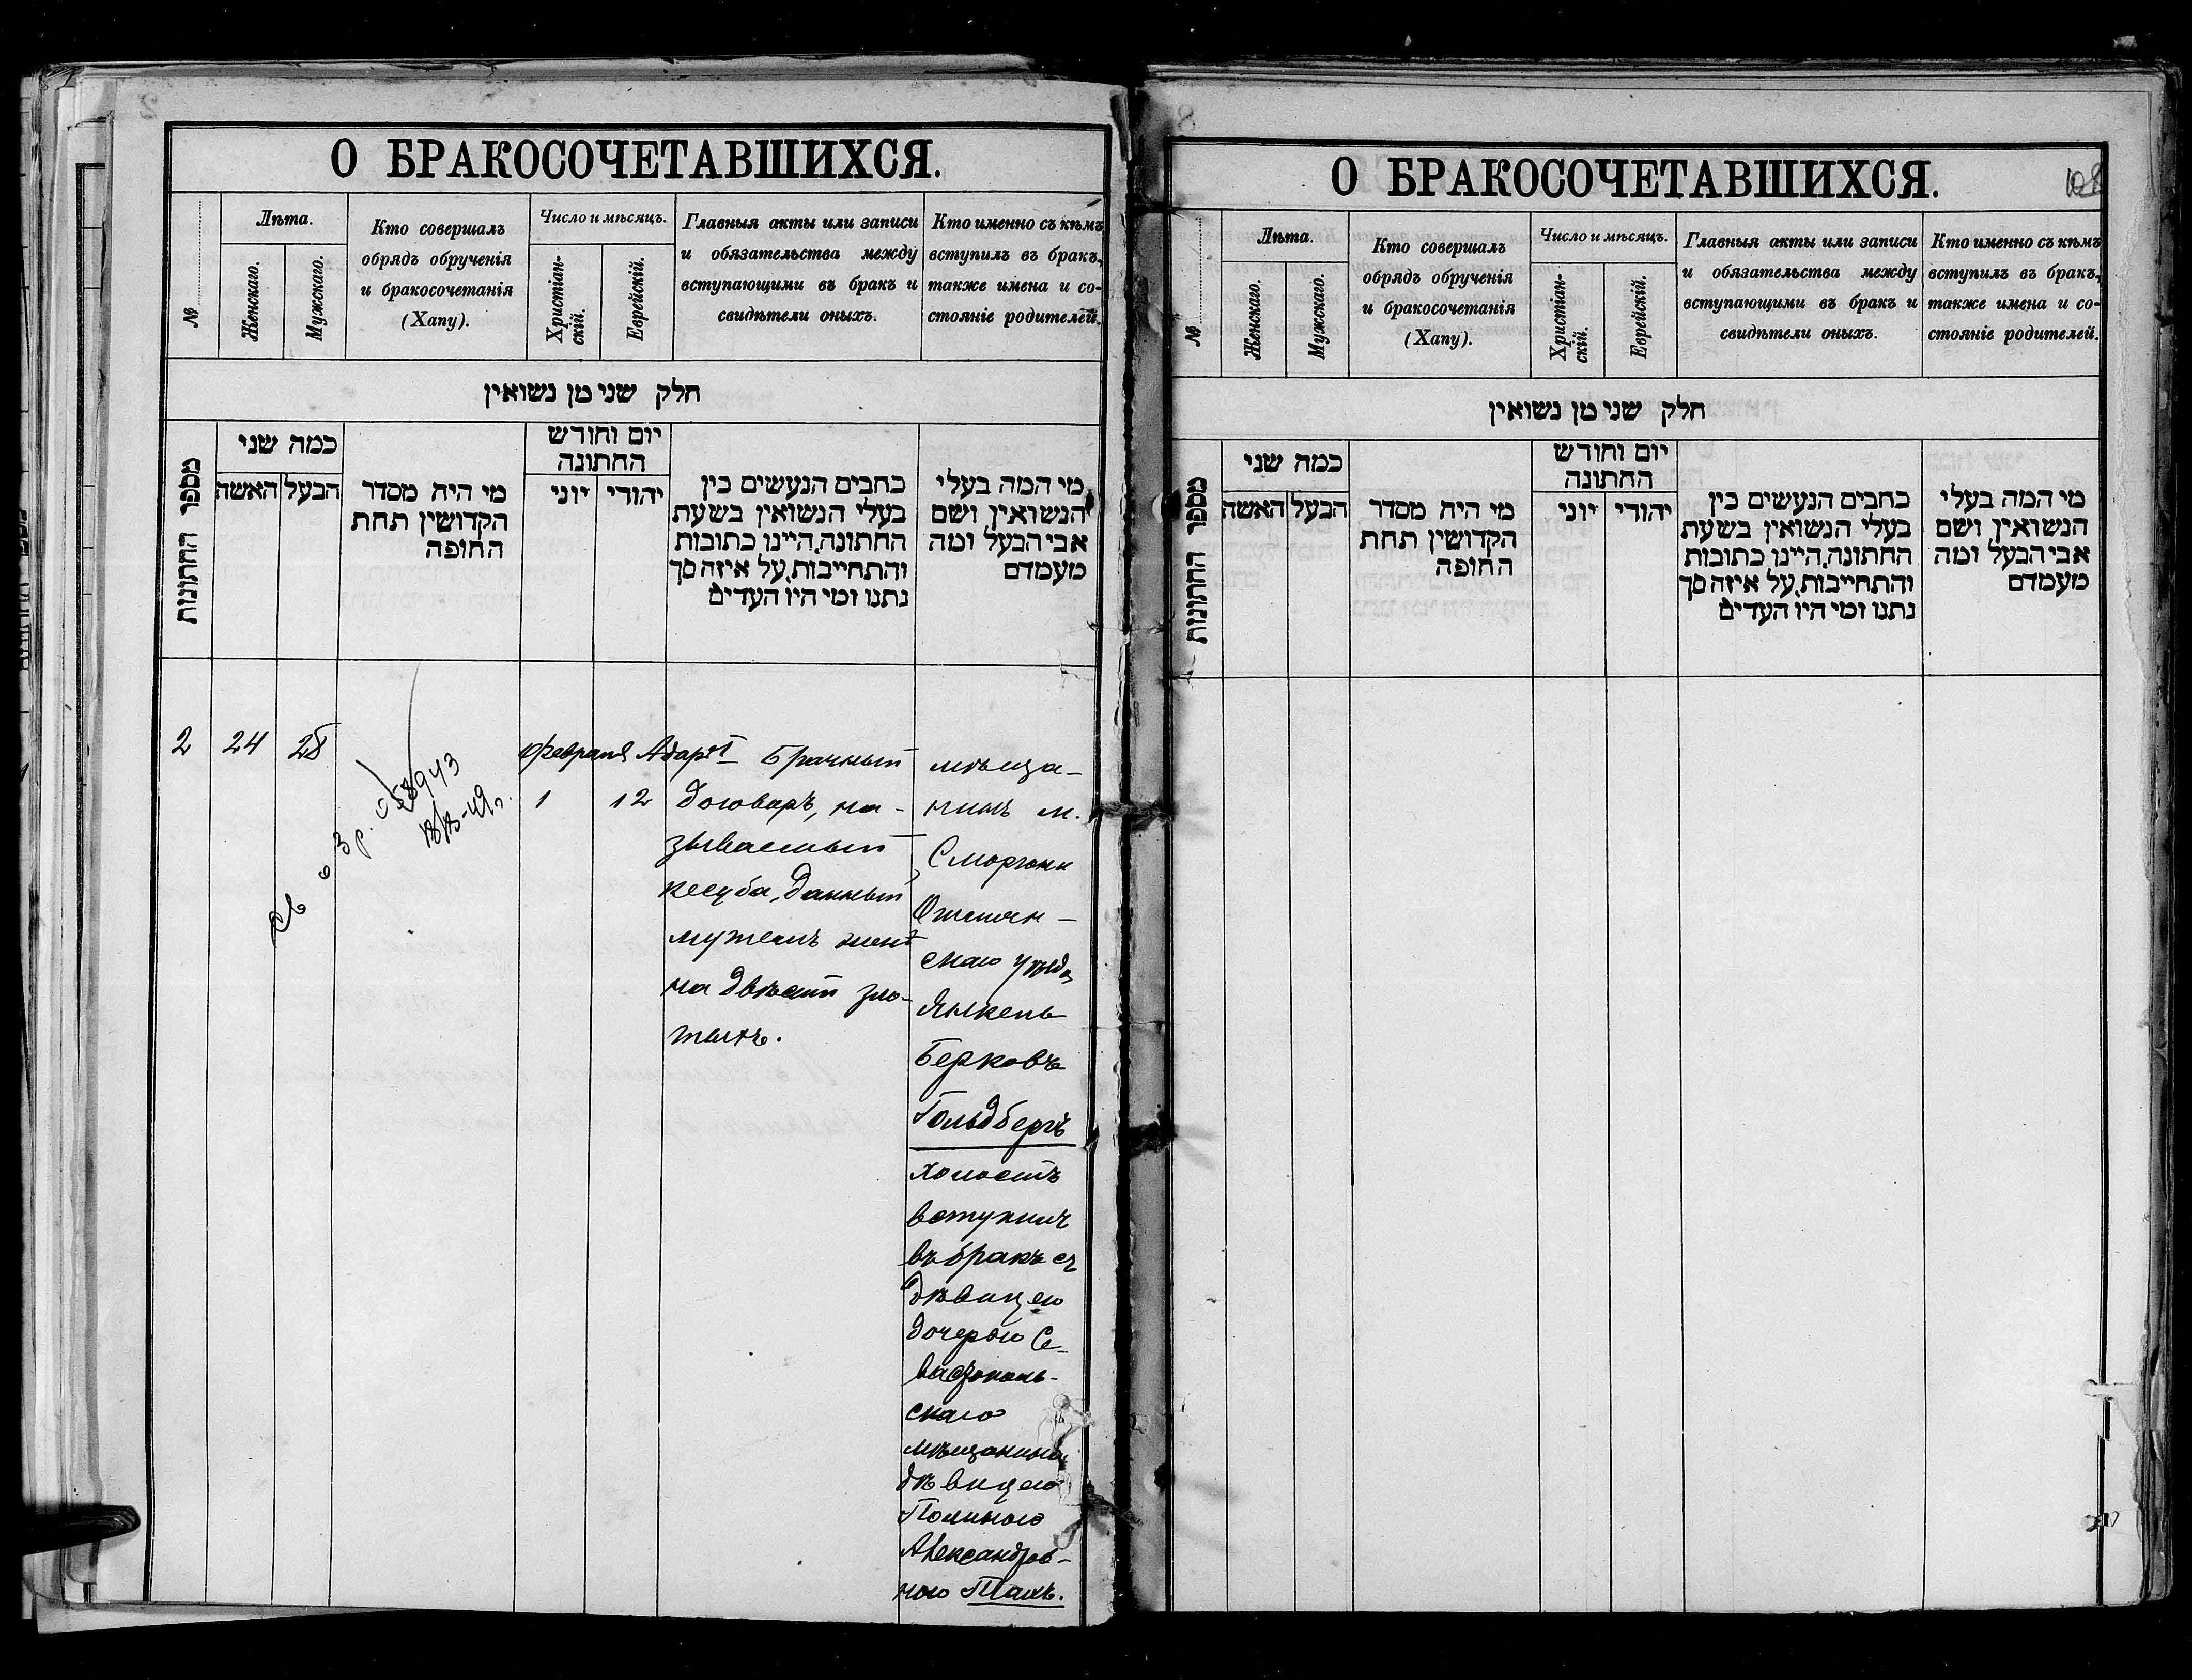 О БРАКОСОЧЕТАВШИХСЯ.
№
Лѣта.
Женскаго.
Мужскаго.
Кто совершалъ
обрядъ обрученія
и бракосочетанія
(Хапу).
Число и мѣсяцъ.
Христіан-
скій.
Еврейскій.
Главныя акты или записи
и обязательства между
вступающими въ бракъ и
свидѣтели оныхъ.
Кто именно съ кѣмъ
вступилъ въ бракъ,
также имена и со-
стояніе родителей.
חלק שני מן נשואין
מספר החתונות
כמה שני
האשה
הבעל
מי היה מסדר
הקדושין תחת
החופה
יום וחודש
החתונה
יוני
יהודי
כתבים הנעשים בין
בעלי הנשואין בשעת
החתונה היינו כתובות
והתחייבות על איזה סך
נתנו ומי היו העדים
מי המה בעלי
הנשואין ושם
אבי הבעל ומה
מעמדם
2
24
28
Св во 3 р.
18/IV-49 г.
Февраля
1
Адаръ I
12
Брачный
договоръ, на-
зываемый
кесуба, данный
мужемъ женѣ
на двѣсти зло-
тыхъ.
мѣща-
нинъ м.
Сморгонь
Ошмян-
скаго уѣзда
Янкель
Берковъ
Гольдбергъ
холостъ
вступилъ
въ бракъ съ
дѣвицею
дочерью Се-
вастополь-
скаго
мѣщанина
дѣвицею
Полиною
Александров-
ною
О БРАКОСОЧЕТАВШИХСЯ.
№
Лѣта.
Женскаго.
Мужскаго.
Кто совершалъ
обрядъ обрученія
и бракосочетанія
(Хапу).
Число и мѣсяцъ.
Христіан-
скій.
Еврейскій.
Главныя акты или записи
и обязательства между
вступающими въ бракъ и
свидѣтели оныхъ.
Кто именно съ кѣмъ
вступилъ въ бракъ,
также имена и со-
стояніе родителей.
חלק שני מן נשואין
מספר החתונות
כמה שני
האשה
הבעל
מי היה מסדר
הקדושין תחת
החופה
יום וחודש
החתונה
יוני
יהודי
כתבים הנעשים בין
בעלי הנשואין בשעת
החתונה היינו כתובות
והתחייבות על איזה סך
נתנו ומי היו העדים
מי המה בעלי
הנשואין ושם
אבי הבעל ומה
מעמדם